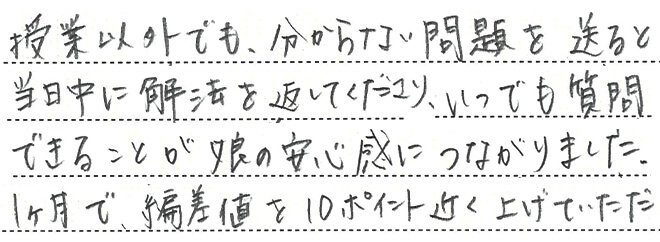 授業以外でも、分からない問題を送ると
当日中に解法を返してくださり、いつでも質問
できることが娘の安心感につながりました。
1ヶ月で、編差値を10ポイント近く上げていただ